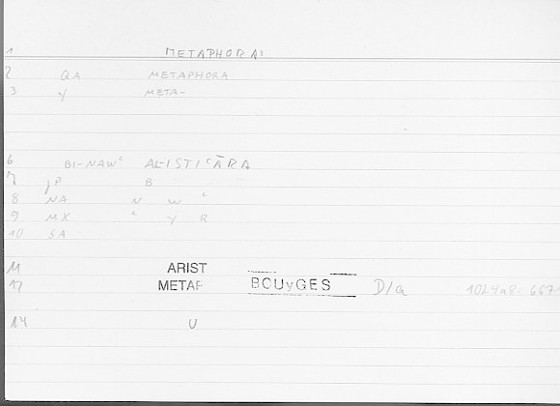 1 METAPHORA:
2 QA METAPHORA
3 Y META-
6 BI-NAWʿ AL-ISTIʿĀRA
7 JP B
8 NA N W ʿ
9 MX ʿ Y R
10 SA
11 ARIST
12 METAP BCUyGES D/a
14 U